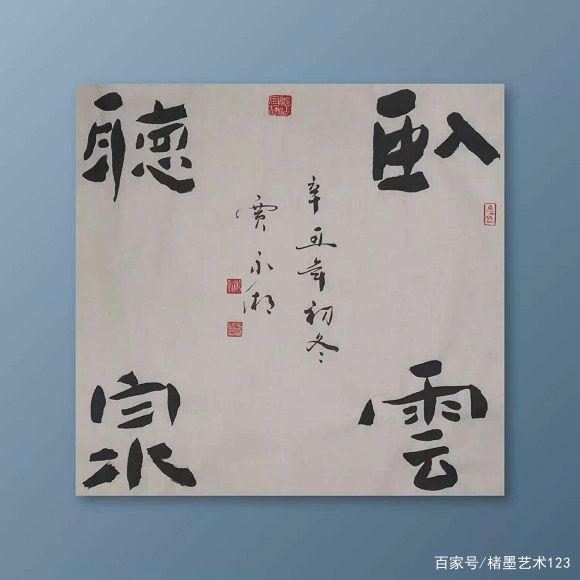 臥雲
聽泉
辛丑年初冬
賈永湘
百家号/楮墨艺术123